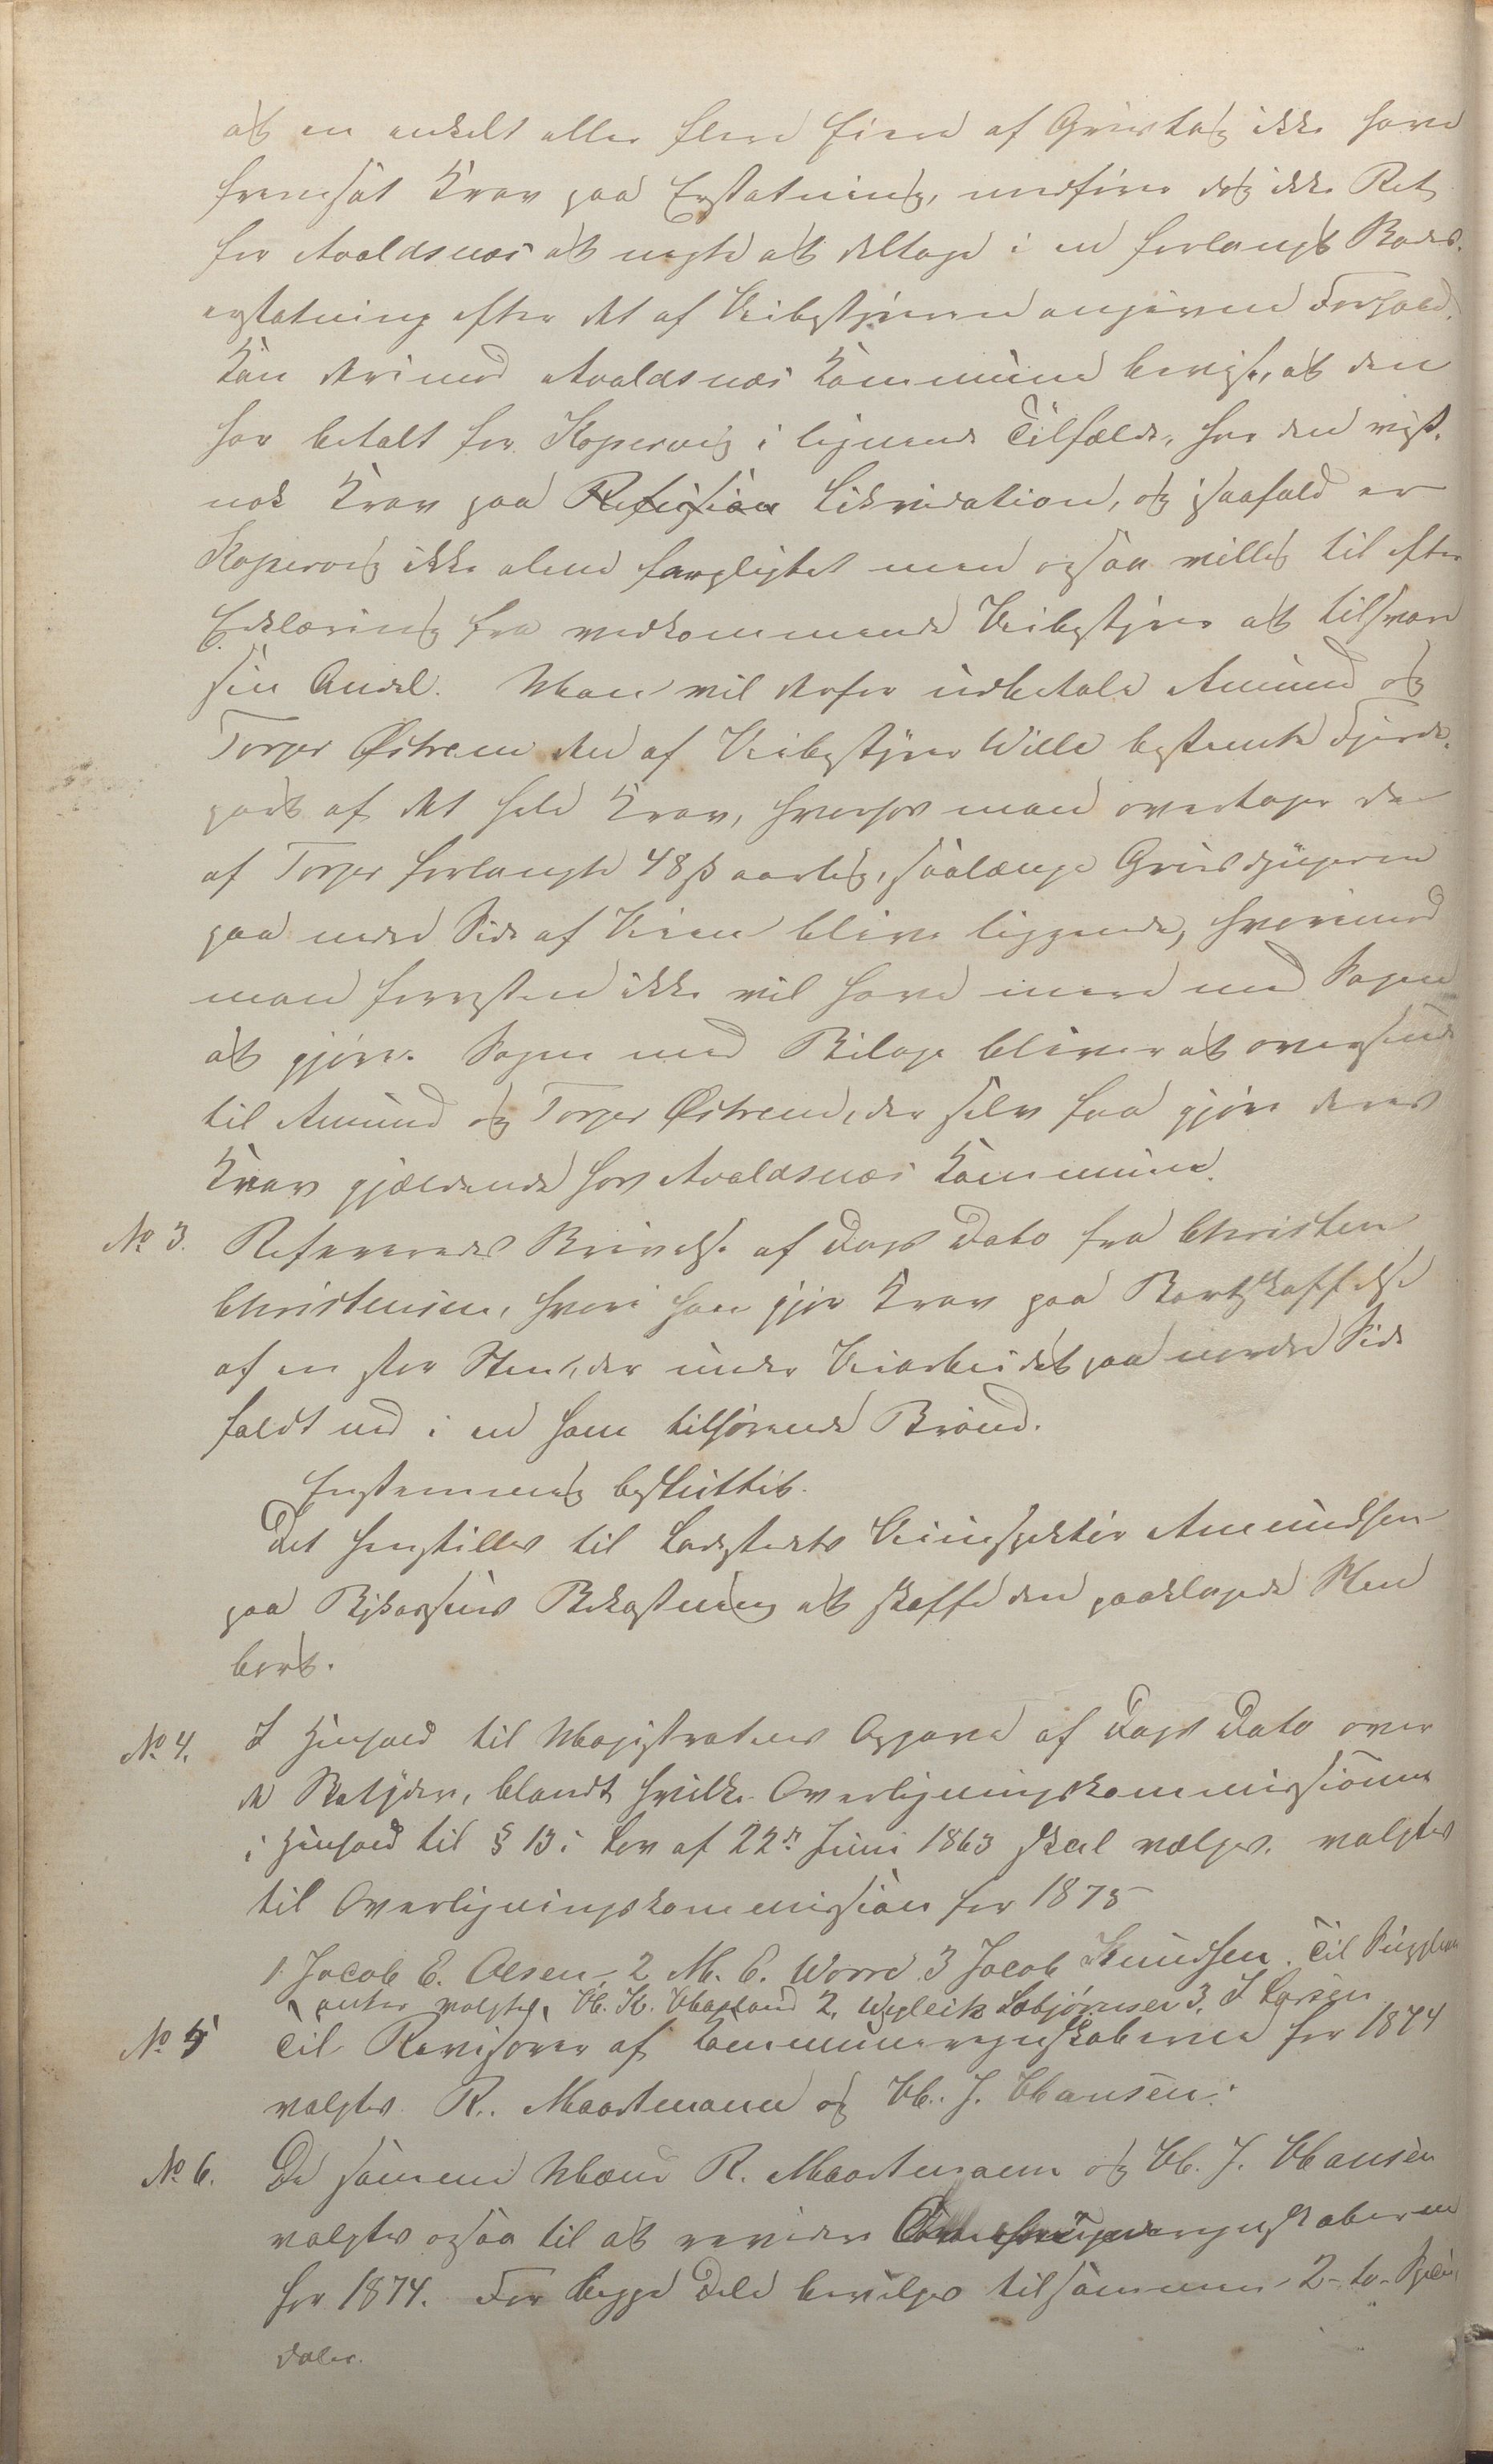 at en enkelt eller flere Eiere af Grustag ikke have
fremsat Krav paa Erstatning, medfører dog ikke Ret
for Avaldsnæs at negte at deltage i en forlangt
erstatning efter det af Veibestyreren angivne Forhold.
Kan derimod Avaldsnæs Kommune bevise, at den
har betalt for Kopervig i lignende Tilfælde, har den vist-
nok Krav paa Refusion Likvidation, og isaafald er
Kopervig ikke alene forpligtet men ogsaa villig til efter
Erklæring fra vedkommende Veibestyrer at tilsvare
sin Andel. Man vil derfor udbetale Amund og
Torger Østrem den af Veibestyrer Wille bestemte Fjerde-
part af det hele Krav, hvorhos man overtager de
af Torger forlangte 48 ß aarlig, saalænge Grusdyngerne
paa nedre Side af Veien blive liggende, hvorimod
man forresten ikke vil have mere med Sagen
at gjøre. Sagen med Bilage bliver at oversende
til Amund og Torger Østrem, der selv faa gjøre deres
Krav gjældende hos Avaldsnæs Kommune.
No 3. Refereredes Skrivelse af Dags Dato fra Christen
Christensen, hvori han gjør Krav paa Bortskaffelse
af en stor Sten, der under Veiarbeidet paa nordre Side
faldt ned i en ham tilhørende Brønd.
Enstemmig besluttet.
Det henstilles til Ladestedets Veiinspektør Amundsen
paa Bykassens Bekostning at skaffe den paaklagede Sten
bort.
No 4. I Henhold til Magistratens Opgave af Dags Dato over
de Skatydere, blandt hvilke Overligningskommissionen
i Henhold til § 13 i Lov af 22de Juni 1863 skal vælges, valgtes
til Overligningskommission for 1875
1. Jacob E. Olsen, 2 M. E. Worre 3 Jacob Knudsen. Til Supple
anter valgtes, Chr. K. 2, 3. I Larsen
No 5 Til Revisorer af Kommuneregnskaberne for 1874
valgtes R. Maartmann og Chr. J. Hansen.
No 6. De samme Mænd R. Maartmann og Chr. J. Hansen
valgtes ogsaa til at revidere regnskaberne
for 1874. For begge Dele bevilges tilsammen 2 - to - Specie
daler.